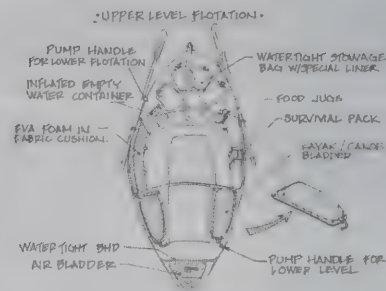 • UPPER LEVEL FLOTATION •
PUMP HANDLE
FOR LOWER FLOTATION
INFLATED EMPTY
WATER CONTAINER
EVA FOAM IN
FABRIC CUSHION.
WATERTIGHT BHD
AIR BLADDER
WATERTIGHT STOWAGE
BAG W/SPECIAL LINER
FOOD JUGS
SURVIVAL PACK
KAYAK/CANOE
BLADDER
PUMP HANDLE FOR
LOWER LEVEL